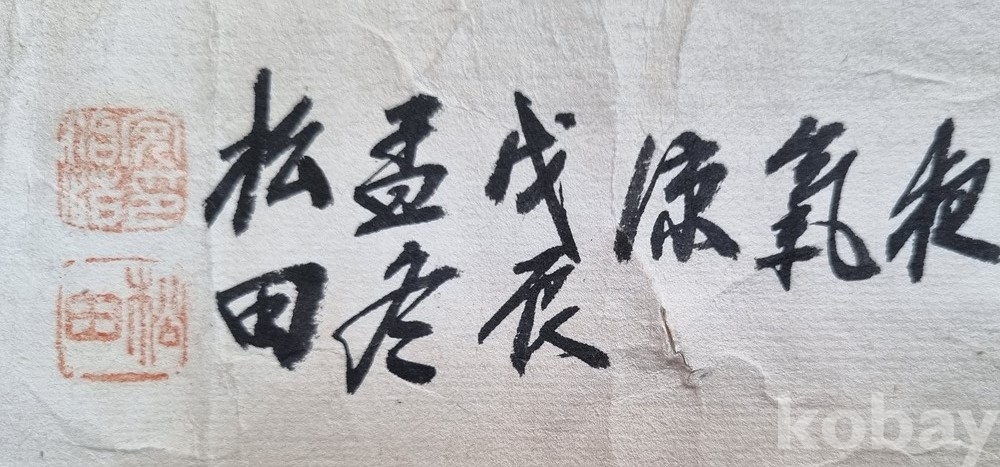 夜氣凉
戊辰
孟冬
松田
松田
kobay